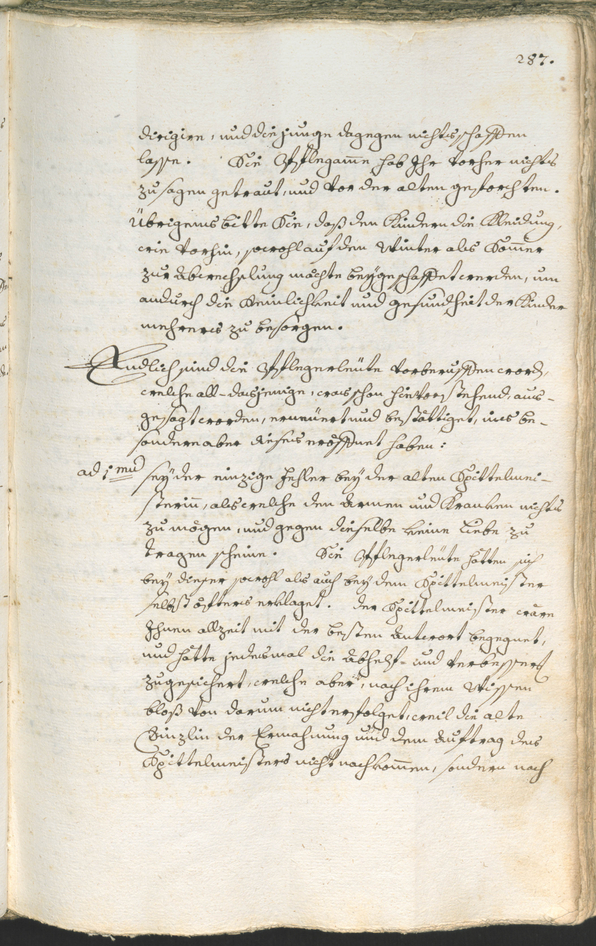 287.
dirigire, und die junge dagegen nichts schaffen
lasse. Die Pflegamme hab Ihr vorher nichts
zu sagen getraut, und vor der alten geforchten.
Übrigens bitte Sie, daß den Kindern die Kleidung,
wie vorhin, sowohl auf den Winter als Sommer
zur Abwechslung möchte beÿgeschaffet werden, um
andurch die Reinlichkeit und gesundheit der Kinder
mehrers zu besorgen.
Endlich sind die Pflegerleüte vorberuffen word,
welche all-dasjenige, was schon hievor stehend, aus-
gesagt worden, erneüert und bestättiget, ins be-
sondere aber dieses eröffnet haben:
ad 1mu seÿ der einzige Fehler beÿ der alten Spittelmei-
sterin, als welche den Armen und Kranken nichts
zu mögen, und gegen dieselbe keine Liebe zu
tragen scheine. Die Pflegerleüte hätten sich
beÿ dieser sowohl als auch beÿ dem Spittelmeister
selbst öfters erklaget. Der Spittelmeister wäre
Ihnen allzeit mit der besten Antwort begegnet,
und hätte jedesmal die Abhelf- und Verbesser
zugesichert, welche aber, nach ihrem Wissen
bloß von darum nicht erfolget, weil die alte
der Ermahnung und dem Auftrag des
Spittelmeisters nicht nachkommen, sondern nach